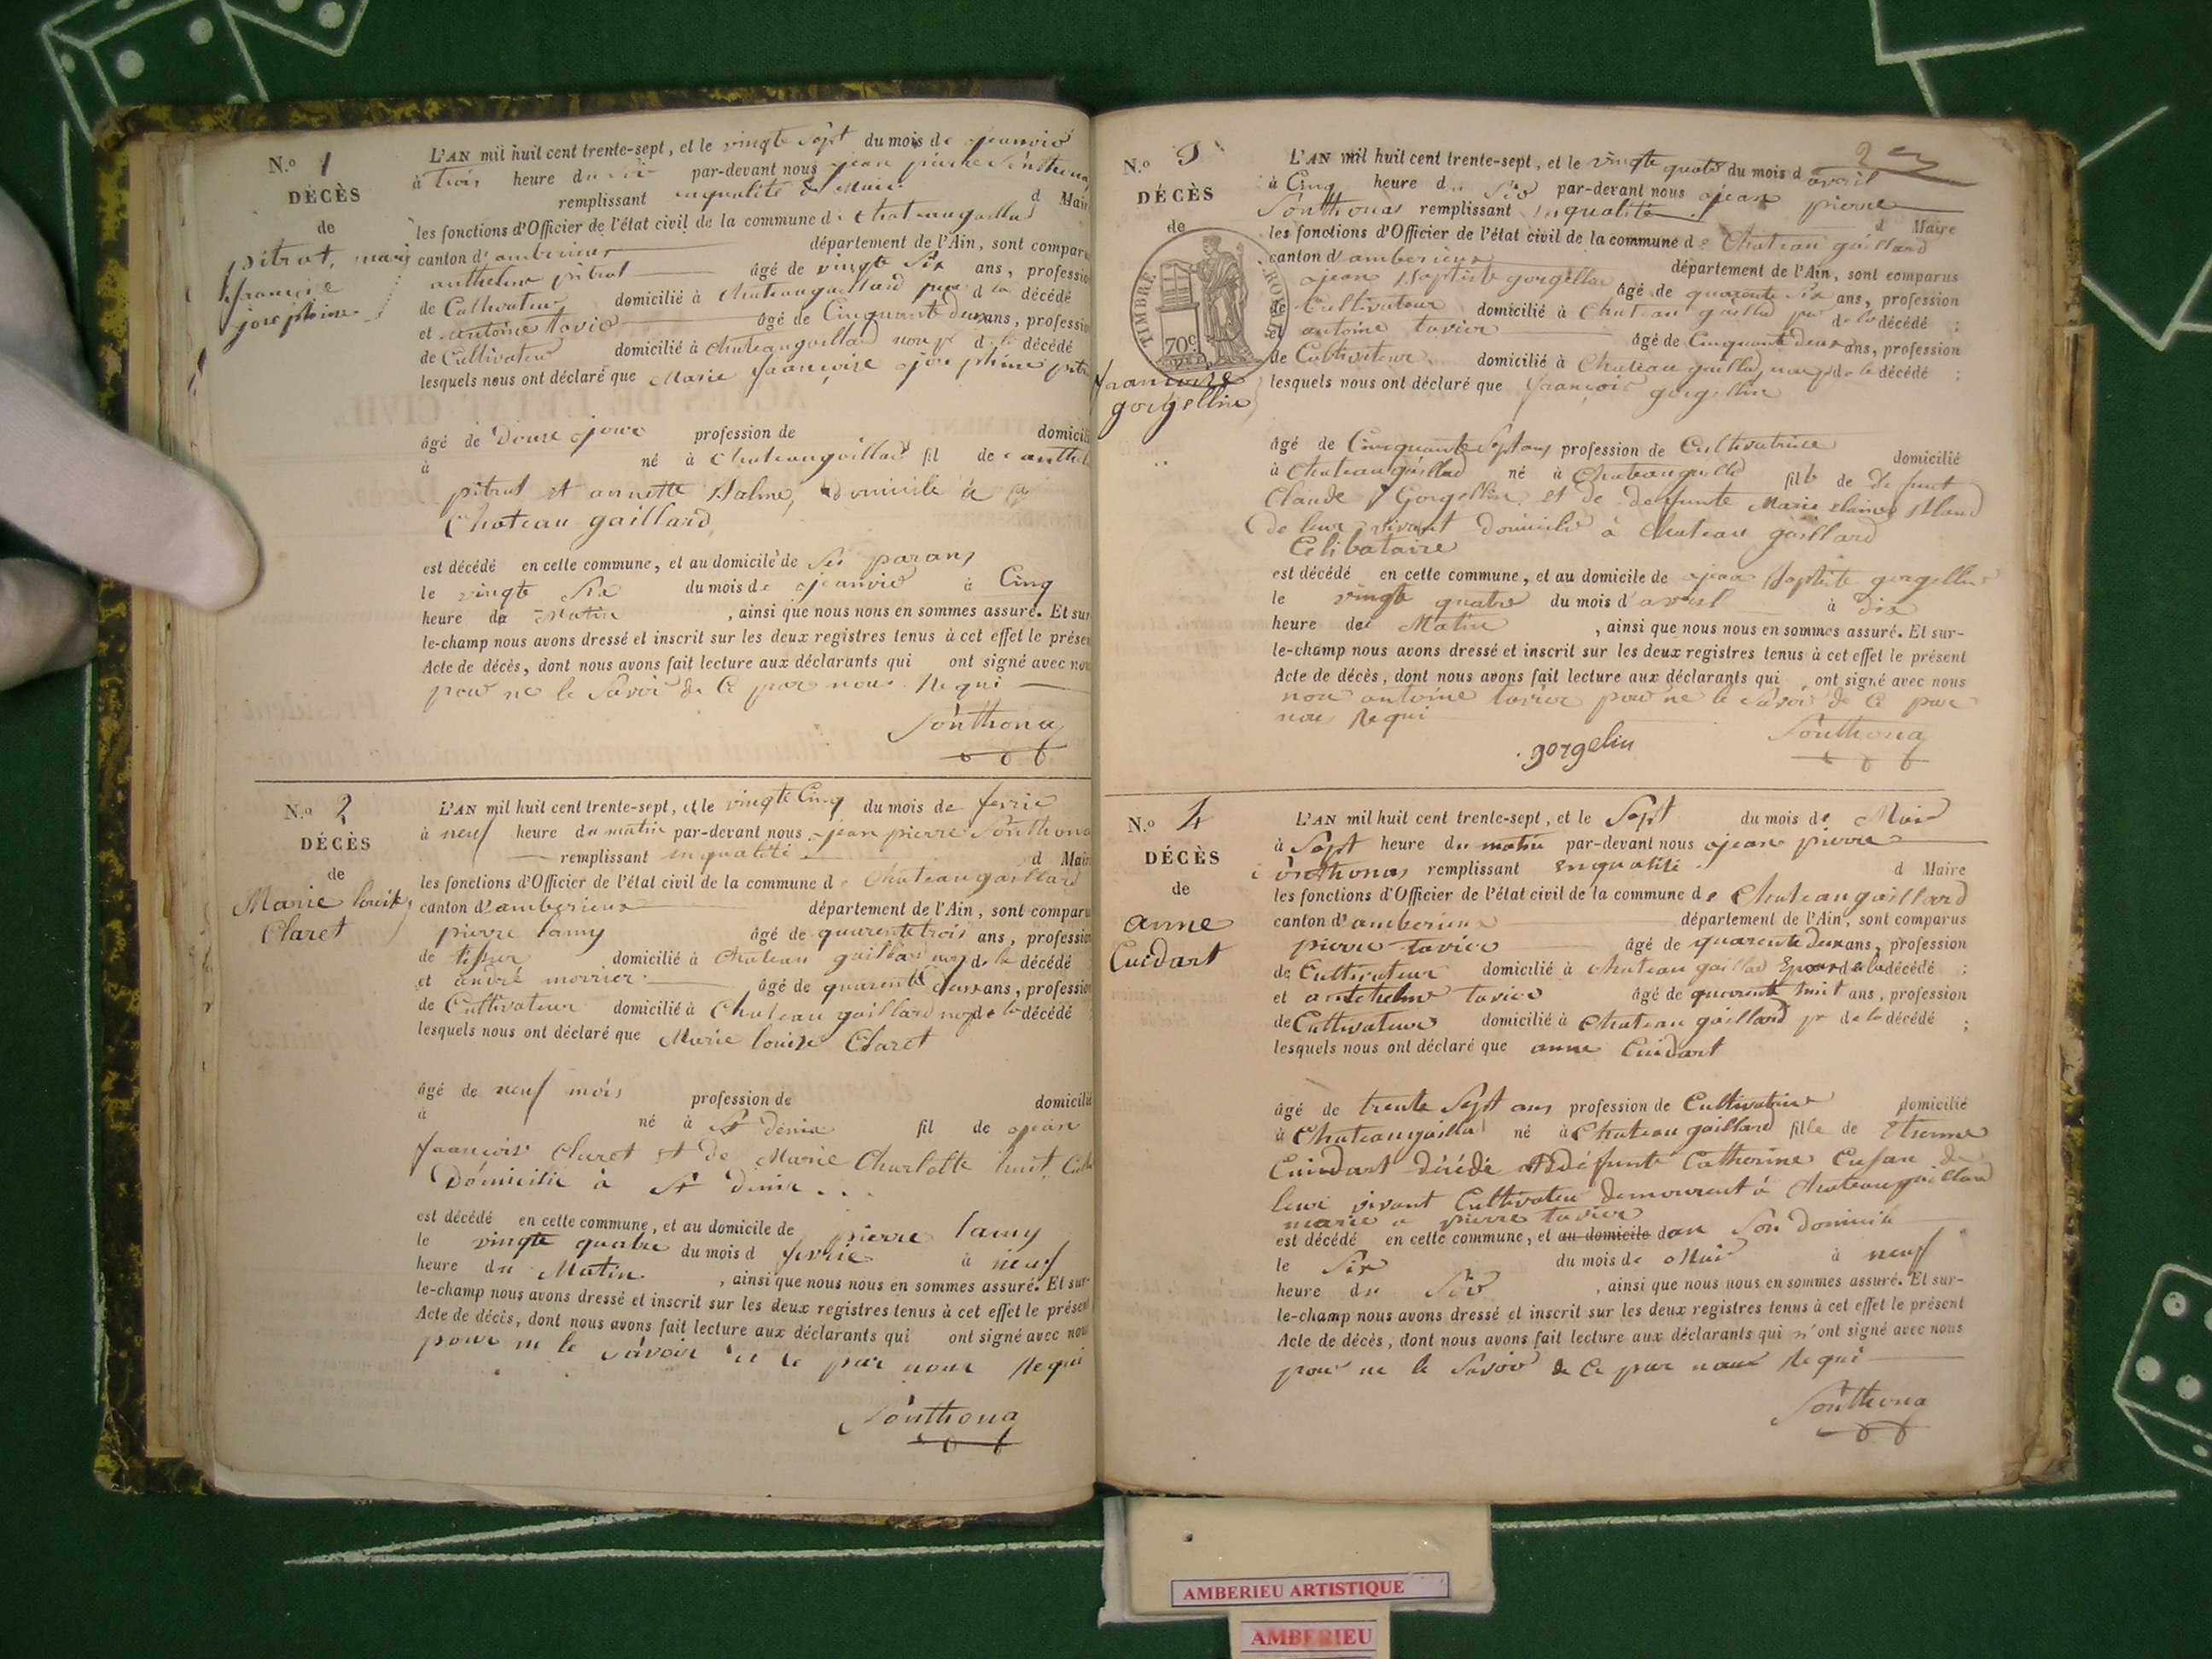 N.o 1
DÉCÈS
de
pitrat, marie
françoise
josephine
L'AN mil huit cent trente-sept, et le vingte sept du mois de jeanvié
à trois heure du soir par-devant nous jean pierre Sonthona
remplissant enqualité de Maire d Maire
les fonctions d'Officier de l'état civil de la commune de chateaugaillard
canton d'amberieux département de l'Ain, sont comparus
anthelme pitrat âgé de vingte six ans, profession
de Cultivateur domicilié à chateaugaillard père d la décédé
et antoine tavier âgé de Cinquante deux ans, profession
de Cultivateur domicilié à chateaugaillard non p d la décédé
lesquels nous ont déclaré que Marie françoise josephine pitrat
âgé de Douze jour profession de domicilié
à né à chateaugaillard fil de anthelme
pitrat et annette Balme, domicilé à
Chateau gaillard
est décédé en cette commune, et au domicile de ses parans
le vingte six du mois de jeanvié à Cinq
heure du Matin , ainsi que nous nous en sommes assuré. Et sur-
le-champ nous avons dressé et inscrit sur les deux registres tenus à cet effet le présent
Acte de décès, dont nous avons fait lecture aux déclarants qui ont signé avec nous
pour ne le savoir de Ce par nous Requi
Sonthona
N.o 2
DÉCÈS
de
Marie louise
Claret
L'AN mil huit cent trente-sept, et le vingte Cinq du mois de fevrié
à neuf heure du matin par-devant nous jean pierre Sonthona
remplissant enqualité d Maire
les fonctions d'Officier de l'état civil de la commune de Chateaugaillard
canton d'amberieux département de l'Ain, sont comparus
pierre lamy âgé de quarente trois ans, profession
de tisseur domicilié à Chateau gaillard non p de la décédé
et andré morrier âgé de quarente deux ans, profession
de Cultivateur domicilié à Chateau gaillard non p de la décédé
lesquels nous ont déclaré que Marie louise Claret
âgé de neuf mois profession de domicilié
à né à St denis fil de jean
françois Claret et de Marie Charlotte
Domicilié à St denis . . .
est décédé en cette commune, et au domicile de pierre lamy
le vingte quatre du mois d fevrié à neuf
heure du Matin , ainsi que nous nous en sommes assuré. Et sur-
le-champ nous avons dressé et inscrit sur les deux registres tenus à cet effet le présent
Acte de décès, dont nous avons fait lecture aux déclarants qui ont signé avec nous
pour ne le savoir de Ce par nous Requi
Sonthona
2
N.o 3
DÉCÈS
de
TIMBRE ROYAL
70c
françoise
gorgellin
L'AN mil huit cent trente-sept, et le vingte quatre du mois d avril
à Cinq heure du soir par-devant nous jean pierre
Sonthonas remplissant enqualité d Maire
les fonctions d'Officier de l'état civil de la commune de Chateau gaillard
canton d'amberieux département de l'Ain, sont comparus
jean Baptiste gorgellin âgé de quarente six ans, profession
de Cultivateur domicilié à Chateau gaillard de la décédé ;
et antoine tavier âgé de Cinquante deux ans, profession
de Cultivateur domicilié à Chateau gaillard, non p de la décédé ;
lesquels nous ont déclaré que françoise gorgellin
âgé de Cinquante sept ans profession de Cultivatrice domicilié
à Chateaugaillard né à Chateaugaillard fille de De funt
Claude Gorgellin et de deffunte Marie
de leur vivant Domicilié à Chateau gaillard
Celibataire
est décédé en cette commune, et au domicile de jean Baptiste gorgellin
le vingte quatre du mois d'avril à Dix
heure de Matin , ainsi que nous nous en sommes assuré. Et sur-
le-champ nous avons dressé et inscrit sur les deux registres tenus à cet effet le présent
Acte de décès, dont nous avons fait lecture aux déclarants qui ont signé avec nous
non antoine tavier pour ne le savoir de Ce par
nous Requi
gorgelin
Sonthona
N.o 4
DÉCÈS
de
anne
Cuidart
L'AN mil huit cent trente-sept, et le Sept du mois de Mai
à Sept heure du matin par-devant nous jean pierre
Sonthonas remplissant enqualité d Maire
les fonctions d'Officier de l'état civil de la commune de Chateaugaillard
canton d'amberieux département de l'Ain, sont comparus
pierre tavier âgé de quarente deux ans, profession
de Cultivateur domicilié à chateau gaillard Epoux de la décédé ;
et antthelme tavier âgé de quarente huit ans, profession
de Cultivateur domicilié à Chateau gaillard de la décédé ;
lesquels nous ont déclaré que anne Cuidart
âgé de trente sept ans profession de Cultivatrice domicilié
à Chateaugaillar né à Chateau gaillard fille de Etienne
Cuidart décédé et défunte Catherine de
leur vivant Cultivateur demeurent à chateaugaillard
marié a pierre tavier
est décédé en cette commune, et au domicile dan Son Domicile
le Six du mois de Mai à neuf
heure du Soir , ainsi que nous nous en sommes assuré. Et sur-
le-champ nous avons dressé et inscrit sur les deux registres tenus à cet effet le présent
Acte de décès, dont nous avons fait lecture aux déclarants qui n'ont signé avec nous
pour ne le savoir de Ce par nous Requi
Sonthona
AMBERIEU ARTISTIQUE
AMBERIEU